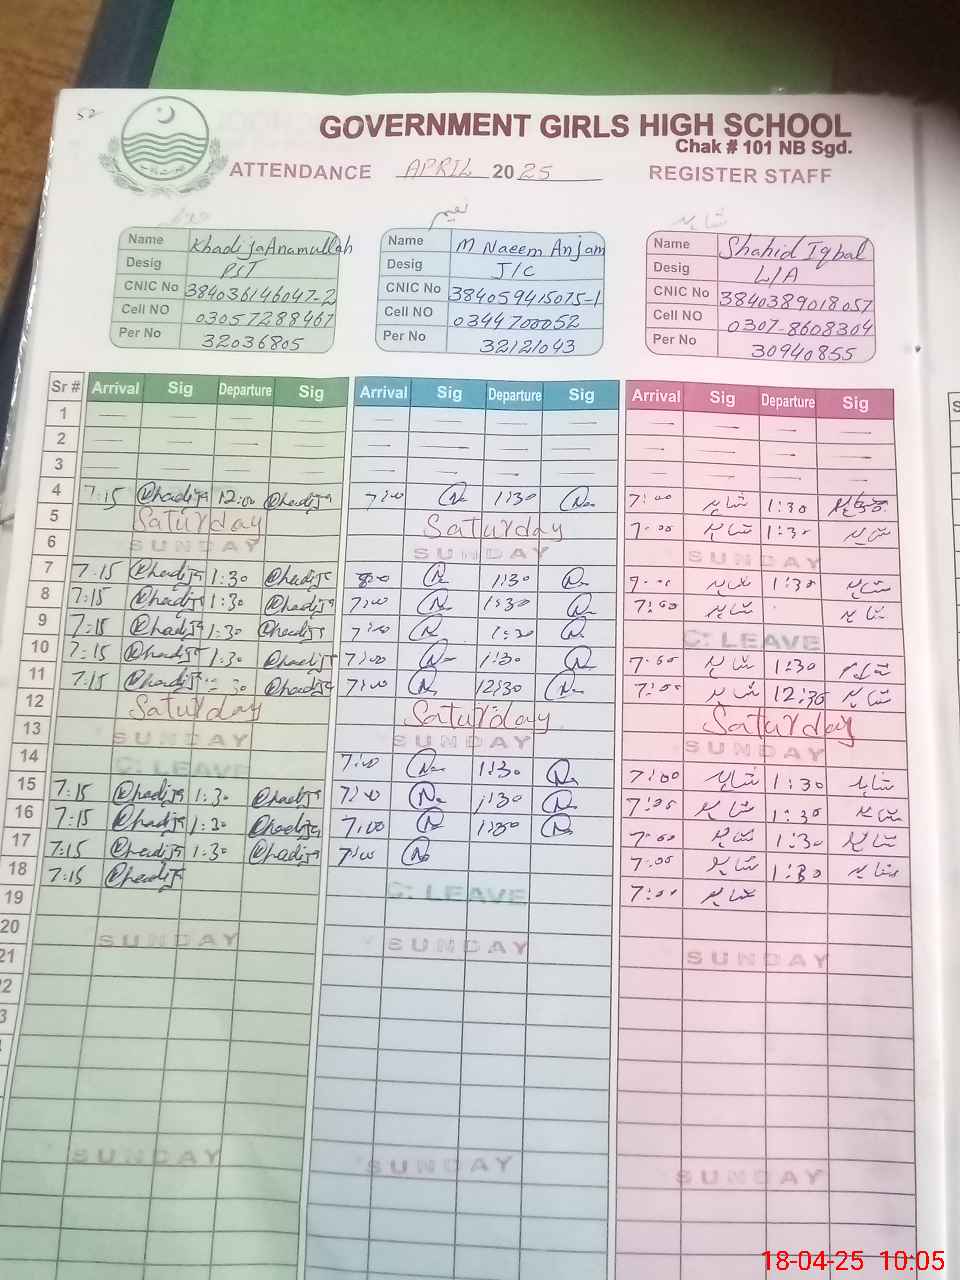 52
GOVERNMENT GIRLS HIGH SCHOOL
Chak # 101 NB Sgd.
ATTENDANCE APRIL 2025 REGISTER STAFF
نعیم شاہد
Name Khadija Anamullah Name M Naeem Anjam Name Shahid Iqbal
Desig PST Desig J/C Desig L/A
CNIC No 384036146047-2 CNIC No 384059415075-1 CNIC No 3840389018057
Cell NO 03057288467 Cell NO 0344700052 Cell NO 0307-8608304
Per No 32036805 Per No 32121043 Per No 30940855
Sr # Arrival Sig Departure Sig Arrival Sig Departure Sig Arrival Sig Departure Sig
1 — — — — — — — — — — — —
2 — — — — — — — — — — — —
3 — — — — — — — — — — — —
4 7:15 Khadija 12:00 Khadija 7:00 Na 1:30 Na 7:00 شاہد 1:30
5 Saturday Saturday 7:00 شاہد 1:30 شاہد
6 SUNDAY SUNDAY SUNDAY
7 7:15 Khadija 1:30 Khadija Na 1:30 Na 7:00 شاہد 1:30 شاہد
8 7:15 Khadija 1:30 Khadija 7:00 Na 1:30 Na 7:00 شاہد شاہد
9 7:15 Khadija 1:30 Khadija 7:00 Na 1:30 Na C: LEAVE
10 7:15 Khadija 1:30 Khadija 7:00 Na 1:30 Na 7:00 شاہد 1:30 شاہد
11 7:15 Khadija Khadija 7:00 Na 12:30 Na 7:00 شاہد 12:30 شاہد
12 Saturday Saturday Saturday
13 SUNDAY SUNDAY SUNDAY
14 C: LEAVE 7:00 Na 1:30 Na 7:00 شاہد 1:30 شاہد
15 7:15 Khadija 1:30 Khadija 7:00 Na 1:30 Na 7:00 شاہد 1:30 شاہد
16 7:15 Khadija 1:30 Khadija 7:00 Na 1:30 Na 7:00 شاہد 1:30 شاہد
17 7:15 Khadija 1:30 Khadija 7:00 Na 7:00 شاہد 1:30 شاہد
18 7:15 Khadija C: LEAVE 7:00 شاہد
19
20 SUNDAY SUNDAY SUNDAY
21
22
3
SUNDAY SUNDAY SUNDAY
18-04-25 10:05